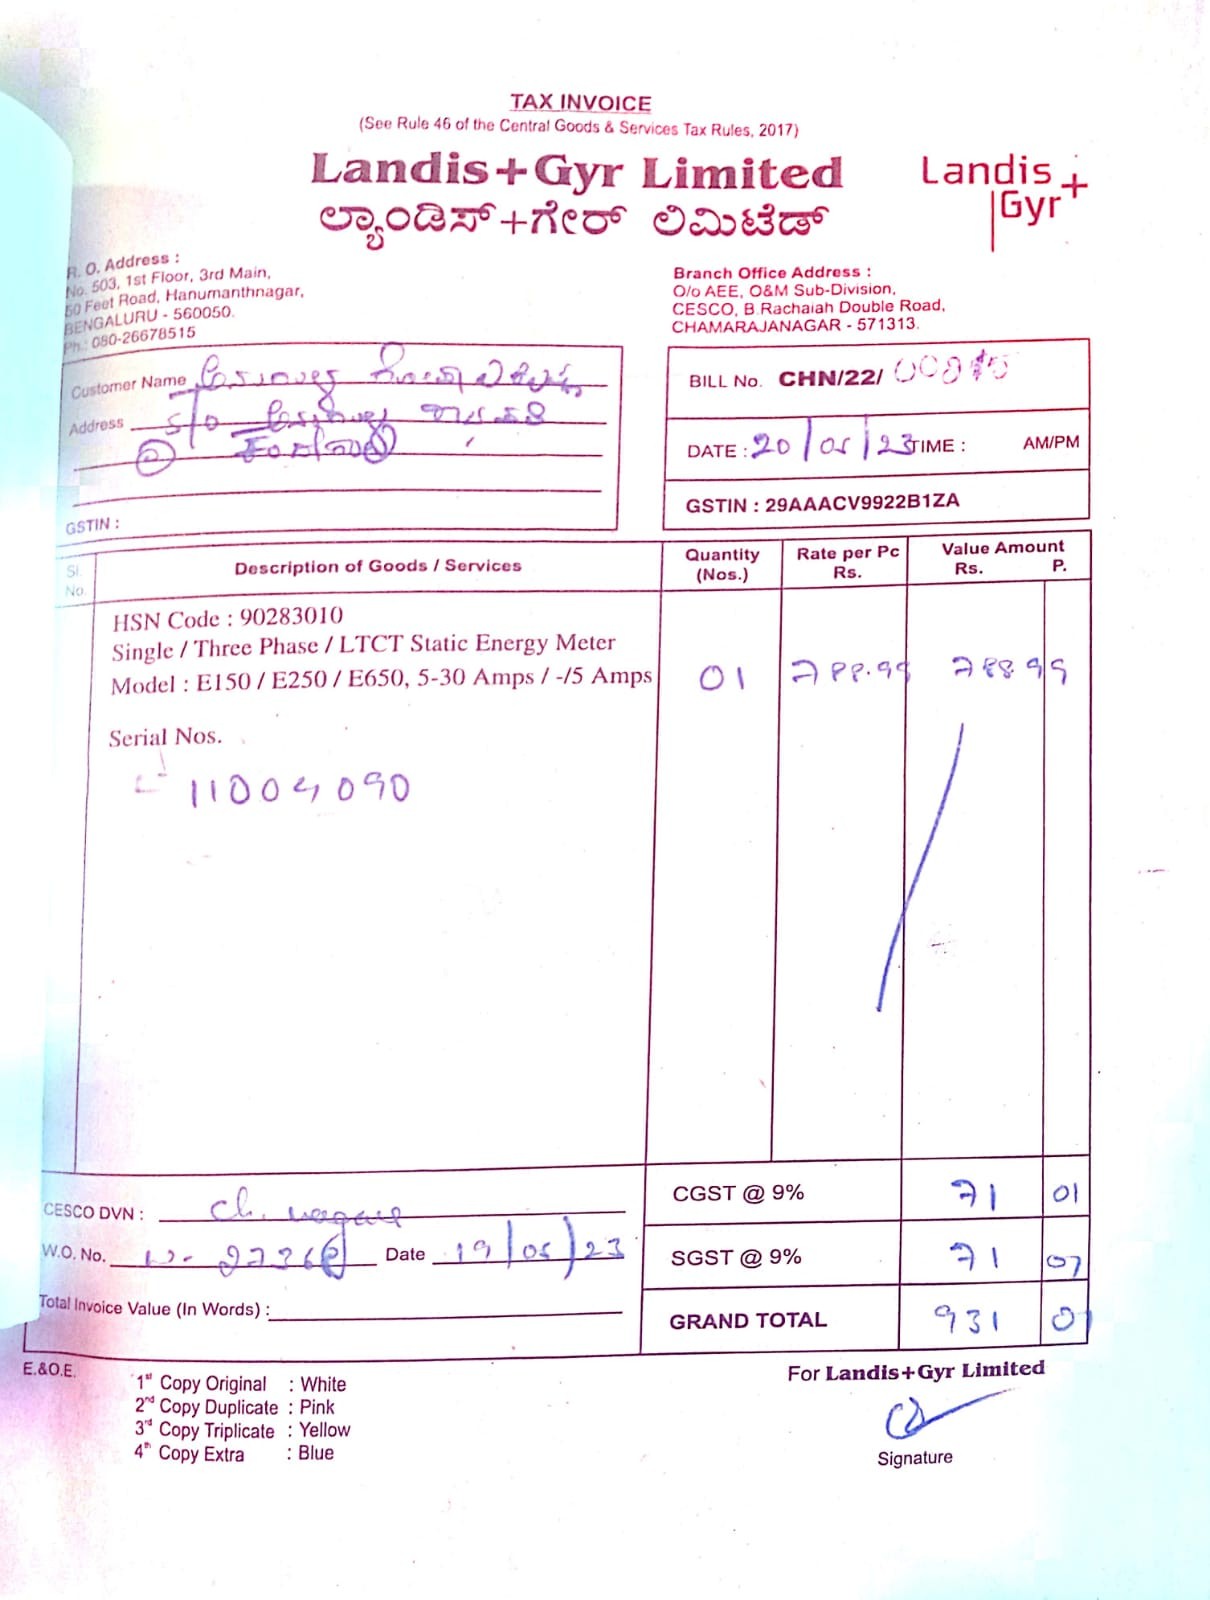 TAX INVOICE
(See Rule 46 of the Central Goods & Services Tax Rules, 2017)
Landis+Gyr Limited
ಲ್ಯಾಂಡಿಸ್+ಗೇರ್ ಲಿಮಿಟೆಡ್
Landis+
Gyr
R. O. Address :
No. 503, 1st Floor, 3rd Main,
50 Feet Road, Hanumanthnagar,
BENGALURU - 560050.
Ph.: 080-26678515
Branch Office Address :
O/o AEE, O&M Sub-Division,
CESCO, B.Rachaiah Double Road,
CHAMARAJANAGAR - 571313.
Customer Name
Address S/o
GSTIN :
BILL No. CHN/22/
DATE : 20/05/23 TIME : AM/PM
GSTIN : 29AAACV9922B1ZA
Sl. No. Description of Goods / Services Quantity (Nos.) Rate per Pc Rs. Value Amount Rs. P.
HSN Code : 90283010
Single / Three Phase / LTCT Static Energy Meter
Model : E150 / E250 / E650, 5-30 Amps / -/5 Amps 01 788.99 788.99
Serial Nos.
11004090
CESCO DVN : Ch. nagara
W.O. No. Date 19/05/23
Total Invoice Value (In Words) :
CGST @ 9% 71 01
SGST @ 9% 71 07
GRAND TOTAL 931 07
E.&O.E.
1st Copy Original : White
2nd Copy Duplicate : Pink
3rd Copy Triplicate : Yellow
4th Copy Extra : Blue
For Landis+Gyr Limited
Signature